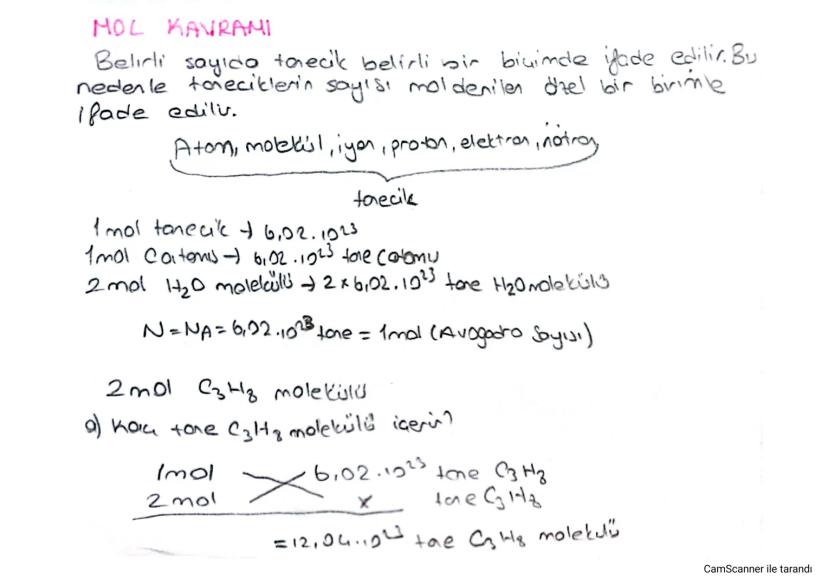 MOL KAVRAMI
Belirli sayıda tanecik belirli bir biçimde ifade edilir. Bu
nedenle taneciklerin sayısı mol denilen özel bir birimle
ifade edilir.
Atom, molekül, iyon, proton, elektron, nötron
tanecik
1 mol tanecik → 6,02.10²³
1 mol C atomu → 6,02.10²³ tane C atomu
2 mol H₂O molekülü → 2x6,02.10²³ tane H₂O molekülü
N = NA = 6,02.10²³ tane = 1mol (Avogadro Sayısı)
2 mol C₃H₈ molekülü
a) Kaç tane C₃H₈ molekülü içerir?
1mol 6,02.10²³ tane C₃H₈
2 mol x tane C₃H₈
= 12,04.10²³ tane C₃H₈ molekülü
CamScanner ile tarandı